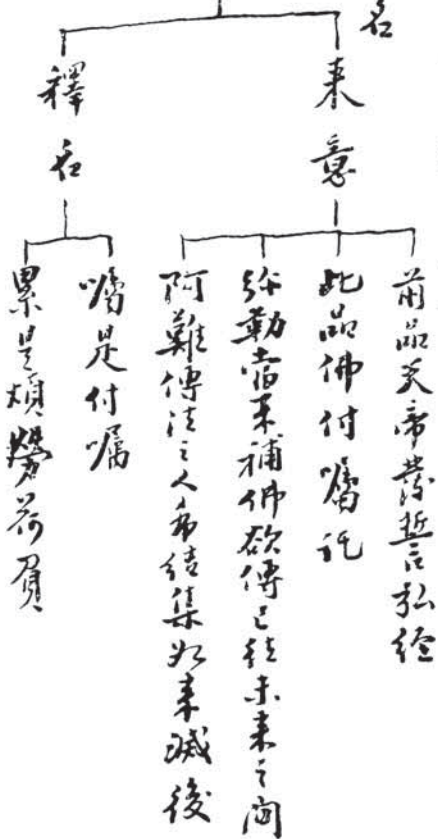 名
来意
前品天帝發誓弘経
此品佛付囑訖
弥勒當来補佛欲傳己経未来之間
阿難傳法之人希結集如来滅後
釋名
囑是付囑
累是煩勞荷負